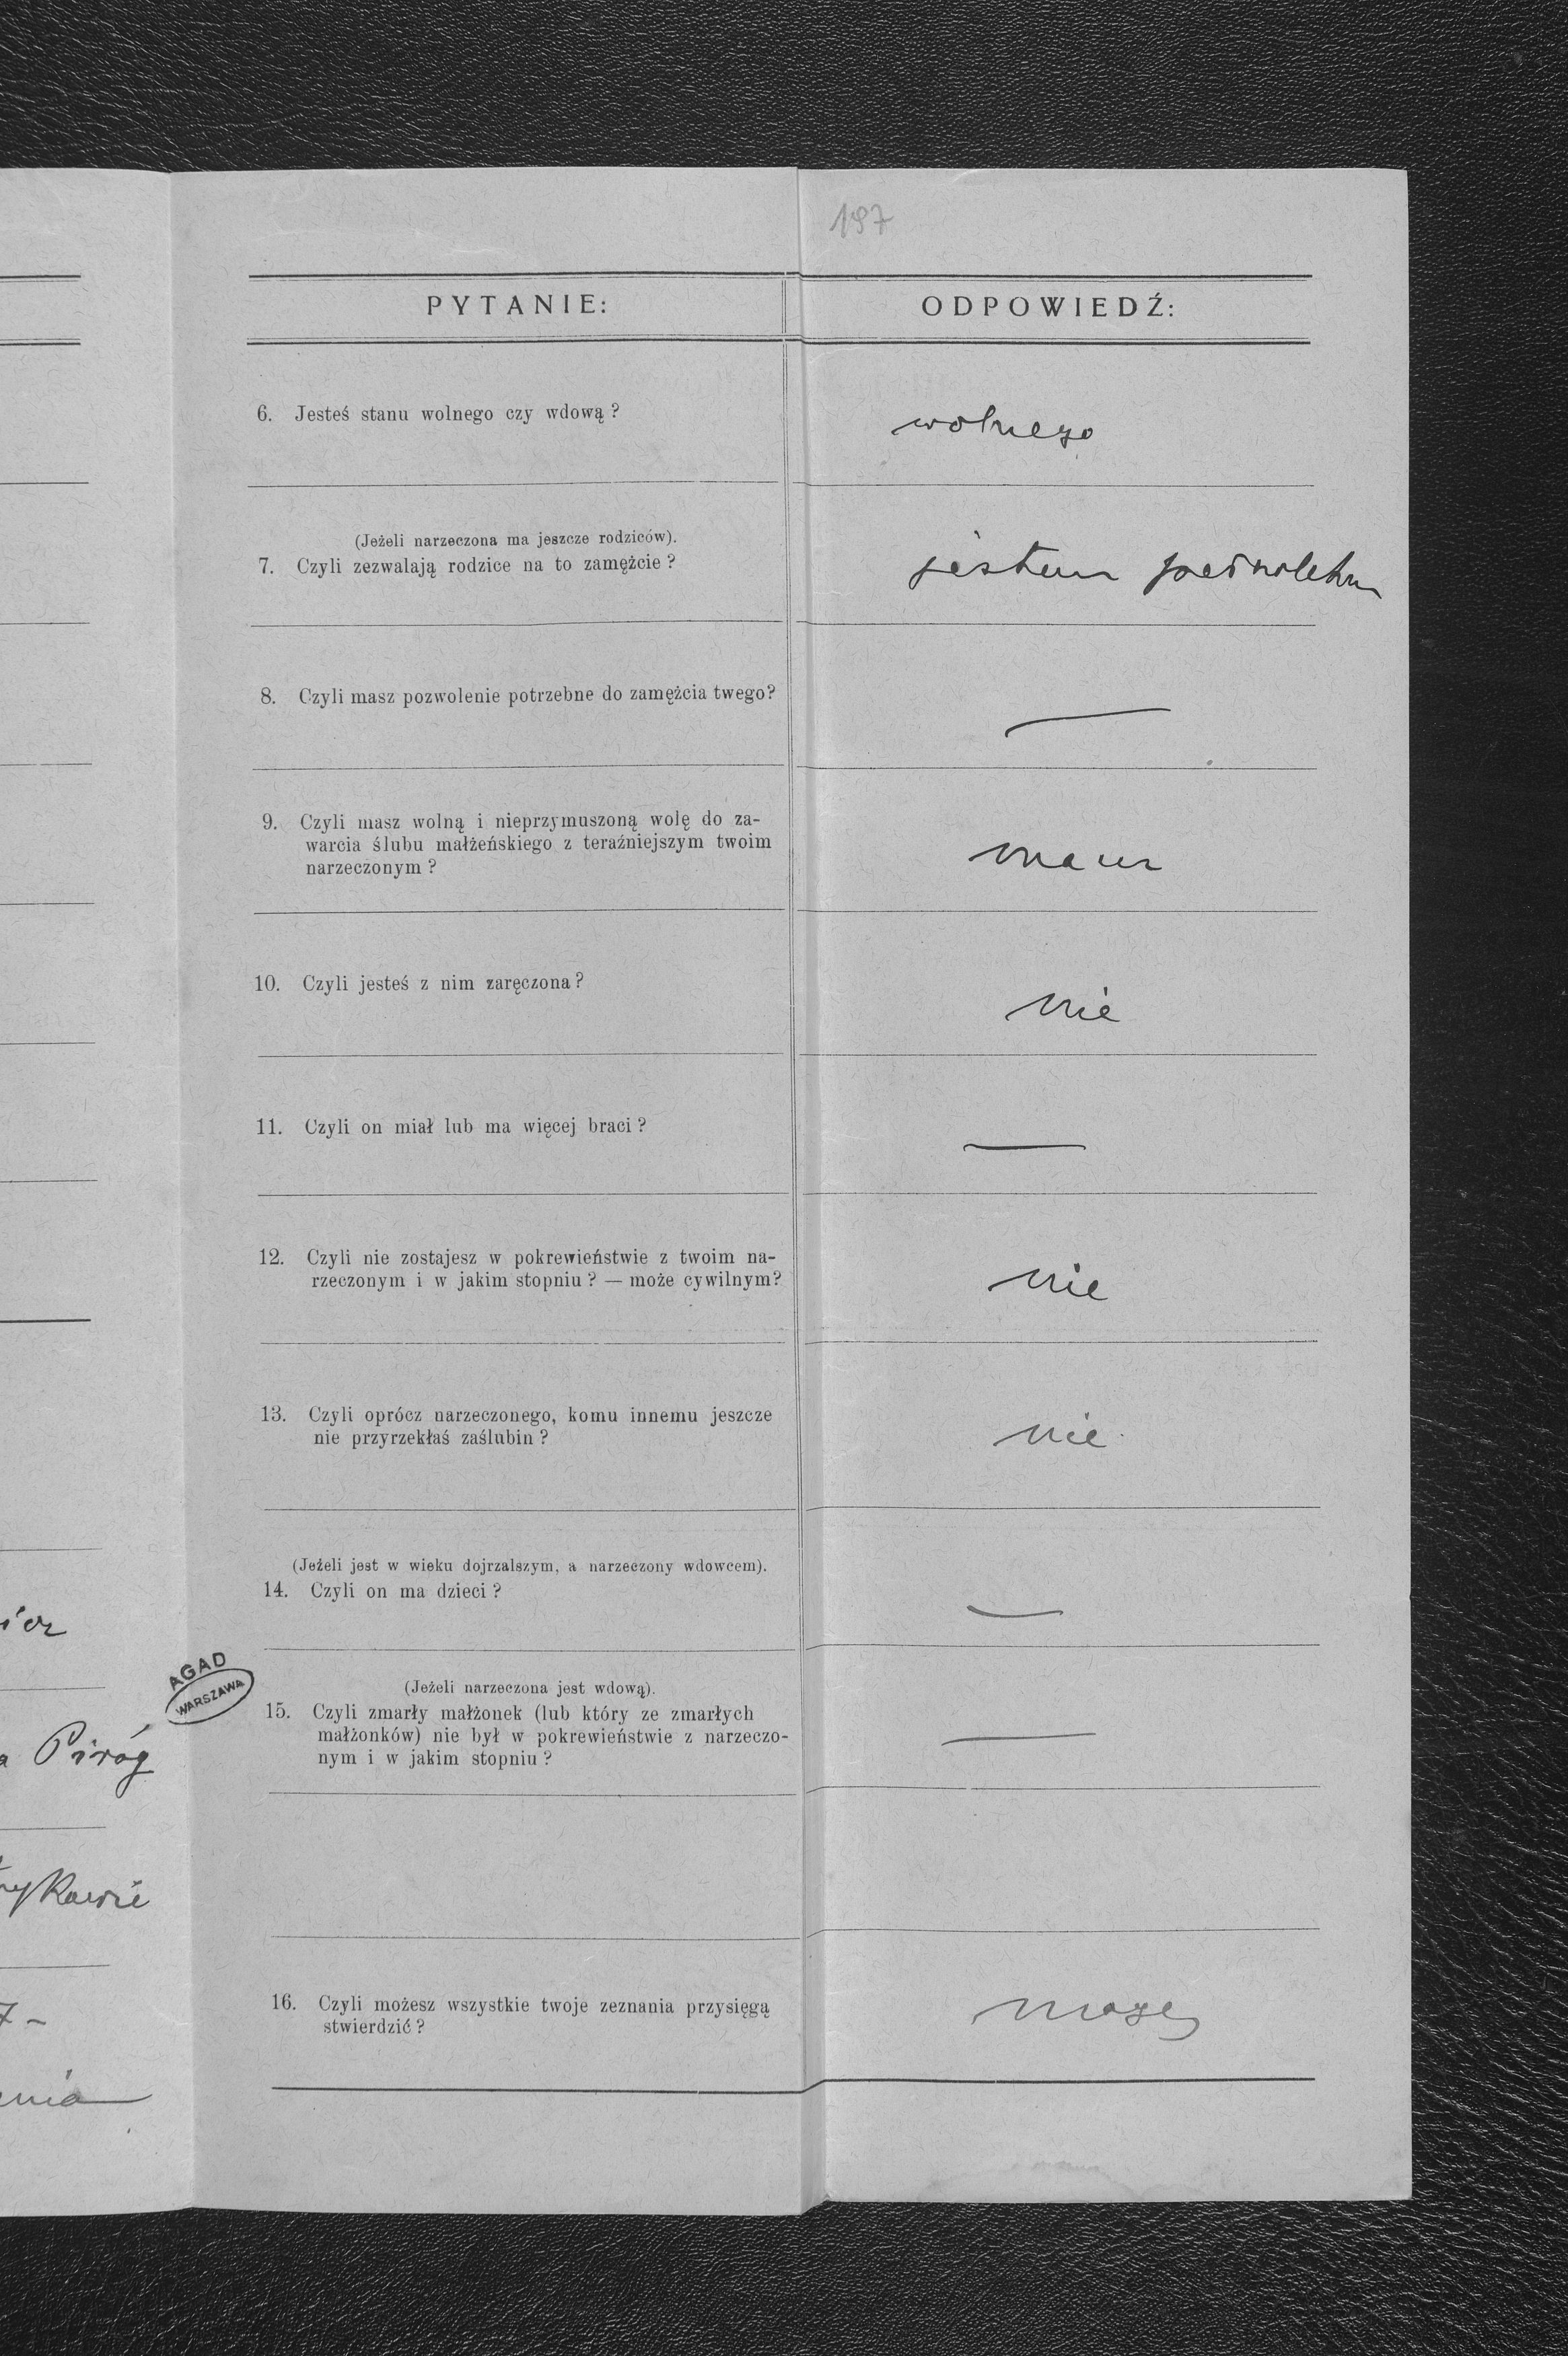 197
PYTANIE: ODPOWIEDŹ:
6. Jesteś stanu wolnego czy wdową? wolnego
(Jeżeli narzeczona ma jeszcze rodziców).
7. Czyli zezwalają rodzice na to zamężcie? jestem pełnoletnia
8. Czyli masz pozwolenie potrzebne do zamężcia twego? —
9. Czyli masz wolną i nieprzymuszoną wolę do za-
warcia ślubu małżeńskiego z teraźniejszym twoim
narzeczonym?
mam
10. Czyli jesteś z nim zaręczona? nie
11. Czyli on miał lub ma więcej braci? —
12. Czyli nie zostajesz w pokrewieństwie z twoim na-
rzeczonym i w jakim stopniu? — może cywilnym?
nie
13. Czyli oprócz narzeczonego, komu innemu jeszcze
nie przyrzekłaś zaślubin?
nie
(Jeżeli jest w wieku dojrzalszym, a narzeczony wdowcem).
14. Czyli on ma dzieci? —
(Jeżeli narzeczona jest wdową).
15. Czyli zmarły małżonek (lub który ze zmarłych
małżonków) nie był w pokrewieństwie z narzeczo-
nym i w jakim stopniu?
—
16. Czyli możesz wszystkie twoje zeznania przysięgą
stwierdzić?
mogę
AGAD
WARSZAWA
Piróg